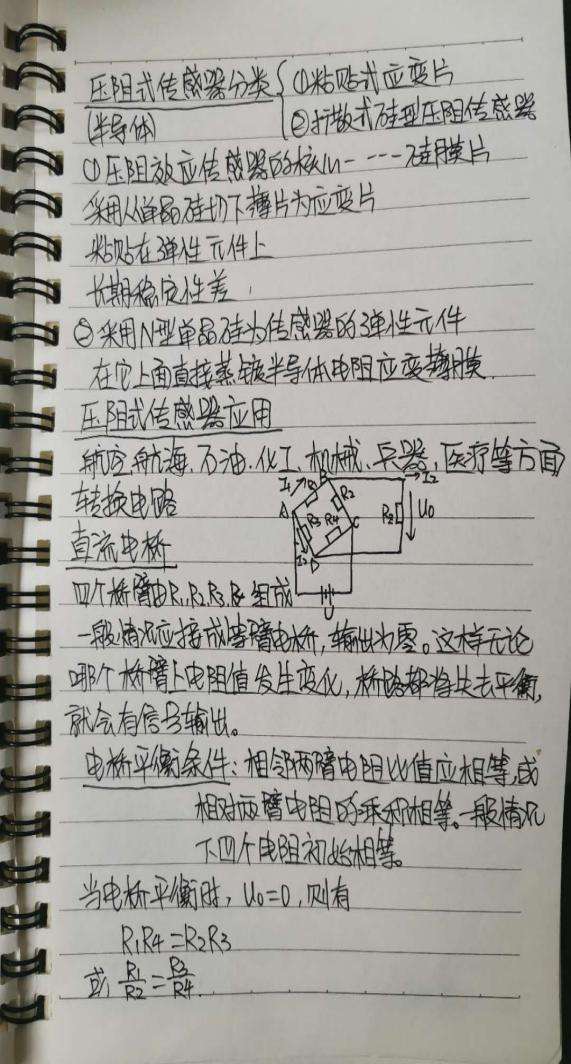 压阻式传感器分类 ①粘贴式应变片
(半导体) ②扩散式硅型压阻传感器
①压阻效应传感器的核心----硅膜片
采用从单晶硅切下薄片为应变片
粘贴在弹性元件上
长期稳定性差
②采用N型单晶硅为传感器的弹性元件
在它上面直接蒸镀半导体电阻应变薄膜
压阻式传感器应用
航空.航海.石油.化工.机械.兵器.医疗等方面
转换电路
I₁ R₁ B R₂ I₂
A R₃ R₄ C U₀
D
U
直流电桥
四个桥臂由R₁.R₂.R₃.R₄组成
一般情况应接成等臂电桥,输出为零。这样无论
哪个桥臂上电阻值发生变化,桥路都将失去平衡,
就会有信号输出。
电桥平衡条件:相邻两臂电阻比值应相等,或
相对两臂电阻的乘积相等。一般情况
下四个电阻初始相等。
当电桥平衡时,U₀=0,则有
R₁R₄=R₂R₃
或 R₁/R₂=R₃/R₄.